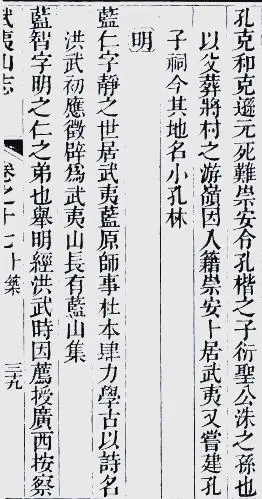 孔克和克遜元死難崇安令孔楷之子衍聖公洙之孫也
以父葬將村之游嶺因入籍崇安卜居武夷又嘗建孔
子祠今其地名小孔林
明
藍仁字靜之世居武夷藍原師事杜本肆力學古以詩名
洪武初應徵辟爲武夷山長有藍山集
藍智字明之仁之弟也舉明經洪武時因薦授廣西按察
武夷山志 卷之十七 卜築 三九